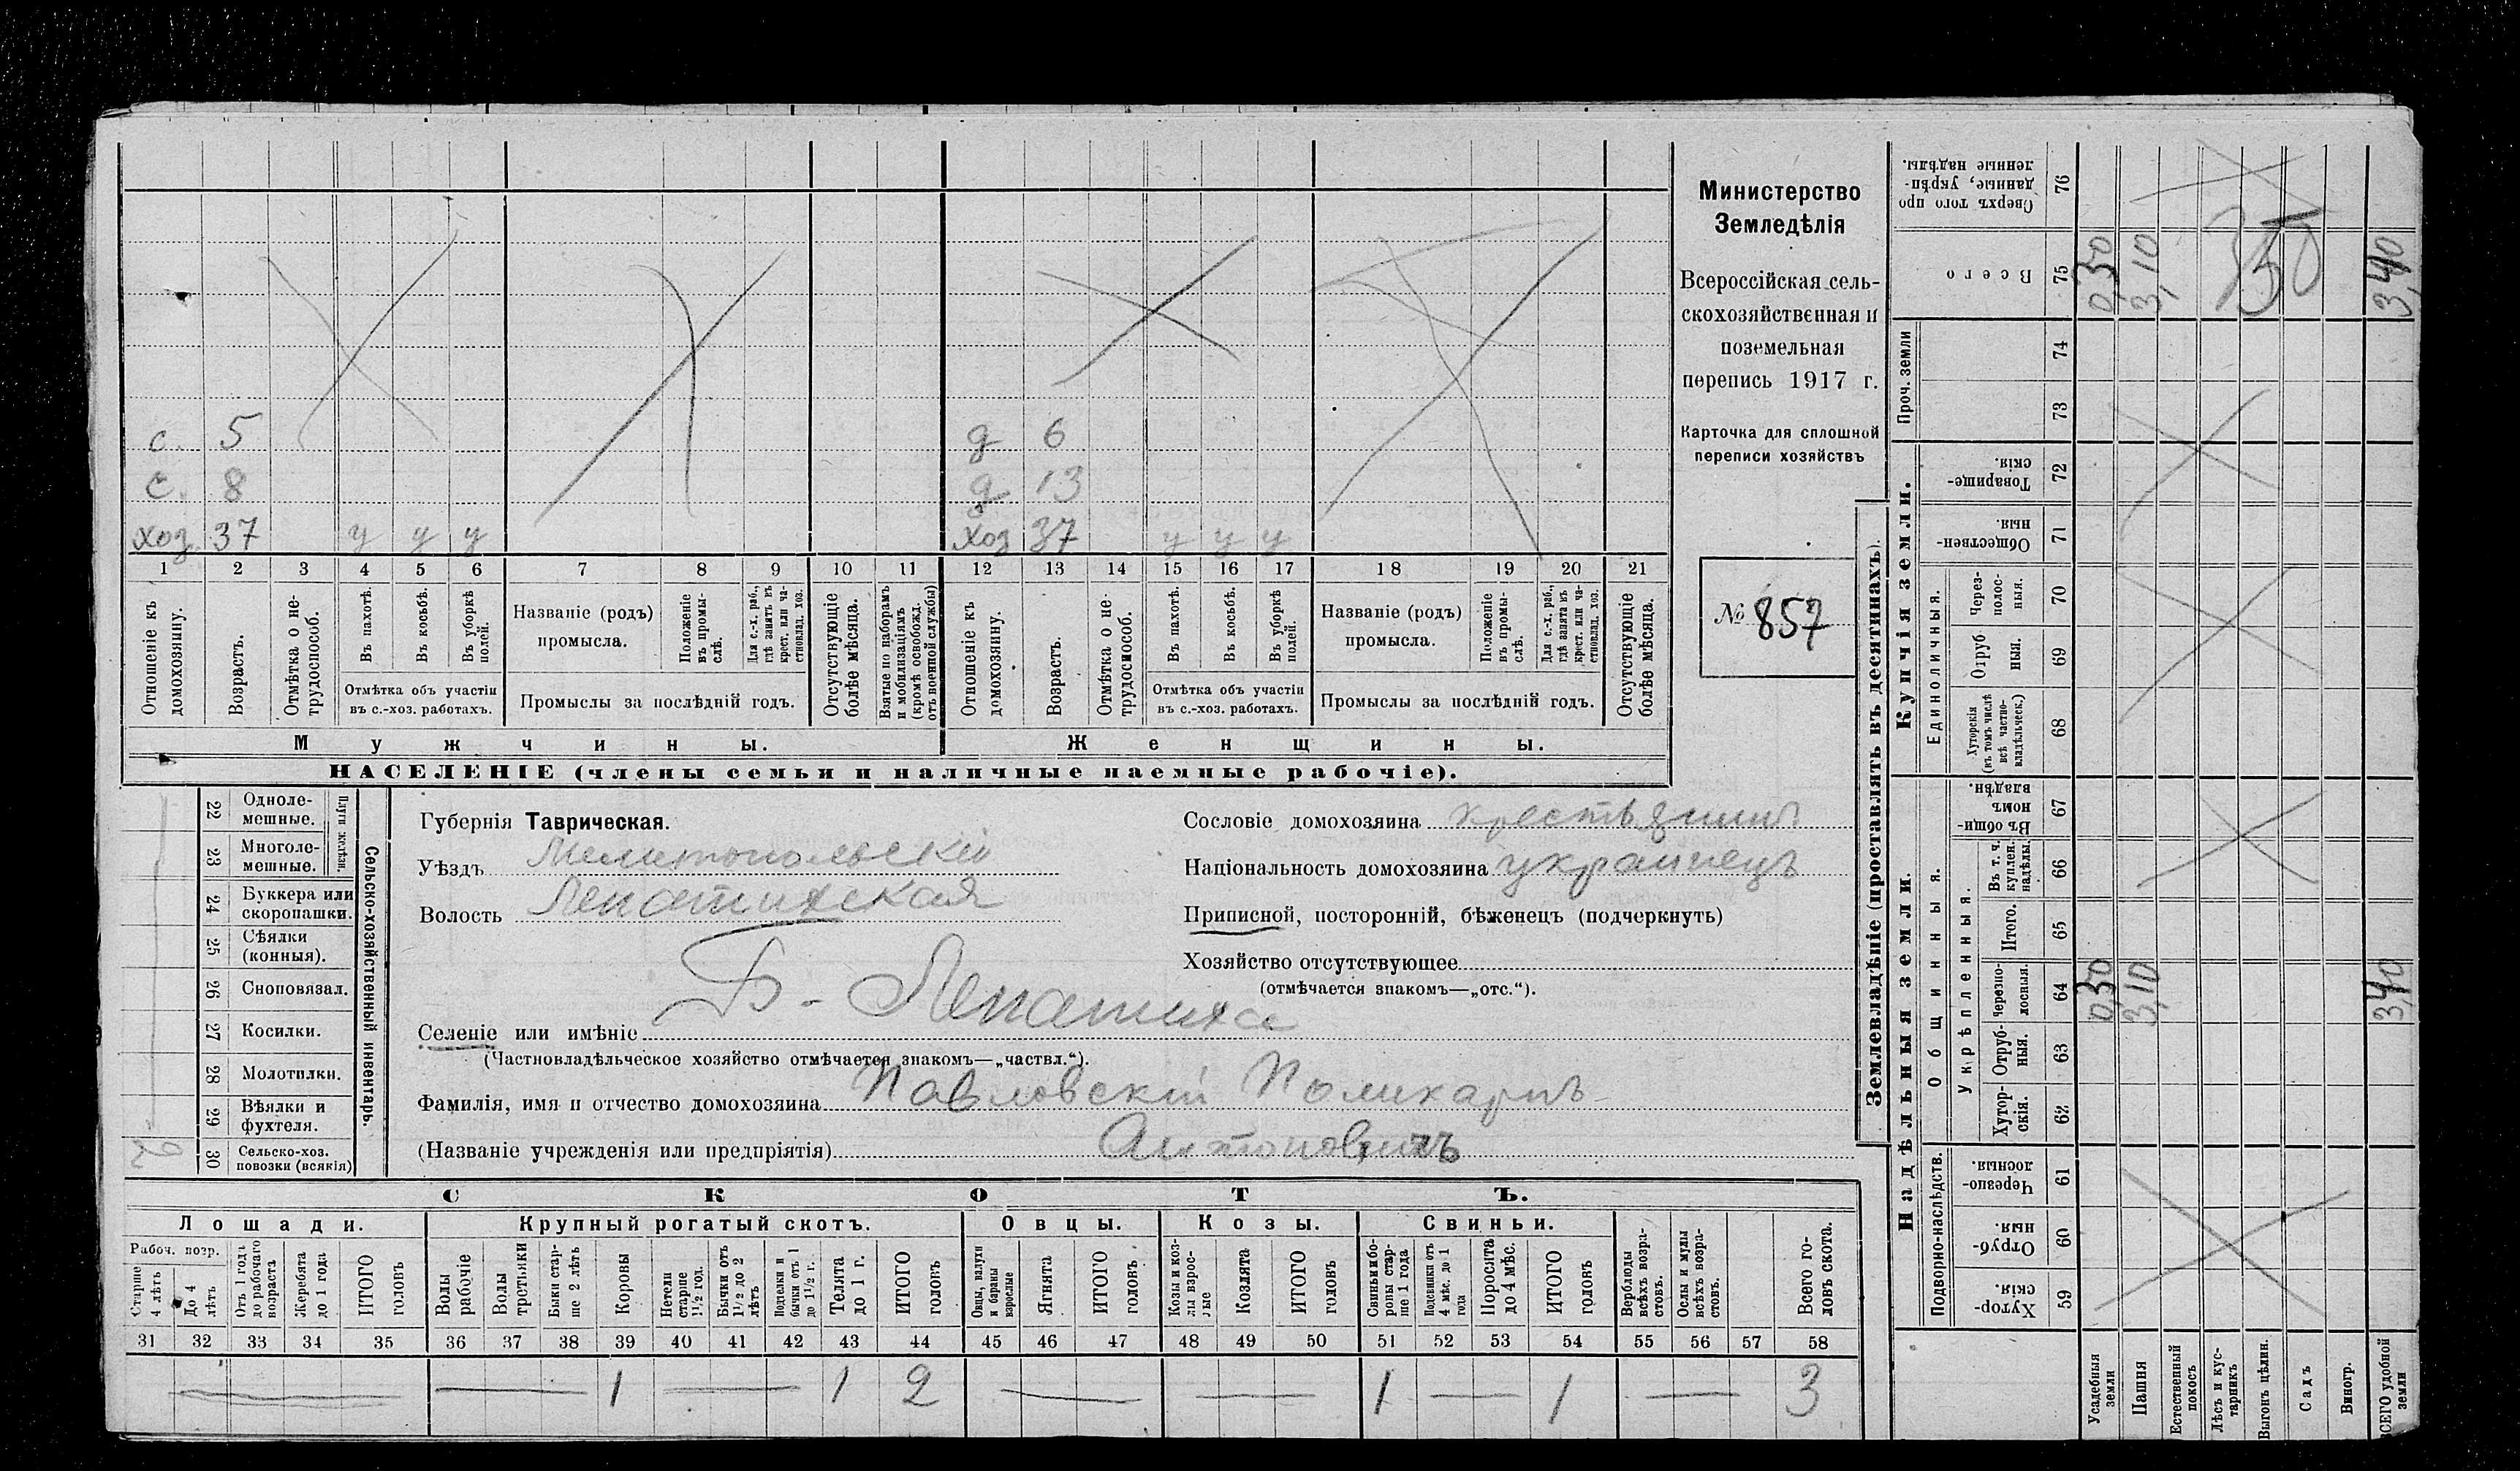 с. 5 д 6
с. 8 д 13
хоз. 37 у у у хоз 37 у у у
1 2 3 4 5 6 7 8 9 10 11 12 13 14 15 16 17 18 19 20 21
Отношеніе къ домохозяину.
Возрастъ.
Отмѣтка о не-трудоспособ.
Въ пахотѣ.
Въ косьбѣ.
Въ уборкѣ полей.
Отмѣтка объ участіи
въ с.-хоз. работахъ.
Названіе (родъ)
промысла.
Положеніе въ промы-слѣ.
Для с.-х. раб., гдѣ занятъ въ крест. или ча-стновлад. хоз.
Промыслы за послѣдній годъ.
Отсутствующіе болѣе мѣсяца.
Взятые по наборамъ и мобилизаціямъ (кромѣ освобожд. отъ военной службы)
Отношеніе къ домохозяину.
Возрастъ.
Отмѣтка о не-трудоспособ.
Въ пахотѣ.
Въ косьбѣ.
Въ уборкѣ полей.
Отмѣтка объ участіи
въ с.-хоз. работахъ.
Названіе (родъ)
промысла.
Положеніе въ промы-слѣ.
Для с.-х. раб., гдѣ занята въ крест. или ча-стновлад. хоз.
Промыслы за послѣдній годъ.
Отсутствующіе болѣе мѣсяца.
Мужчины. Женщины.
НАСЕЛЕНІЕ (члены семьи и наличные наемные рабочіе).
Министерство
Земледѣлія
Всероссійская сель-
скохозяйственная и
поземельная
перепись 1917 г.
Карточка для сплошной
переписи хозяйствъ
№ 857
22 Однолемешные.
23 Многолемешные.
Плуги желѣзн.
24 Буккера или скоропашки.
25 Сѣялки (конныя).
26 Сноповязал.
27 Косилки.
28 Молотилки.
29 Вѣялки и фухтеля.
30 Сельско-хоз. повозки (всякія)
Сельско-хозяйственный инвентарь.
Губернія Таврическая.
Уѣздъ Мелитопольскій
Волость Лепатихская
Б-Лепатиха
Селеніе или имѣніе
(Частновладѣльческое хозяйство отмѣчается знакомъ—„частвл.“).
Фамилія, имя и отчество домохозяина Павловскій Поликарпъ
(Названіе учрежденія или предпріятія) Антоновичъ
Сословіе домохозяина крестьянинъ
Національность домохозяина украинецъ
Приписной, посторонній, бѣженец (подчеркнуть)
Хозяйство отсутствующее
(отмѣчается знакомъ—„отс.“).
СКОТЪ.
Лошади. Крупный рогатый скотъ. Овцы. Козы. Свиньи.
Рабоч. возр.
Старше 4 лѣтъ
До 4 лѣтъ
Отъ 1 года до рабочаго возраста
Жеребята до 1 года
ИТОГО головъ
Волы рабочіе
Волы третьяки
Быки стар-ше 2 лѣтъ
Коровы
Нетели старше 1½ год.
Бычки отъ 1½ до 2 лѣтъ
Подтелки и бычки отъ 1 до 1½ г.
Телята до 1 г.
ИТОГО головъ
Овцы, валухи и бараны взрослые
Ягнята
ИТОГО головъ
Козы и коз-лы взрос-лые
Козлята
ИТОГО головъ
Свиньи и бо-ровы стар-ше 1 года
Подсвинки отъ 4 мѣс. до 1 года
Поросята до 4 мѣс.
ИТОГО головъ
Верблюды всѣхъ возра-стовъ.
Ослы и мулы всѣхъ возра-стовъ.
Всего го-ловъ скота.
31 32 33 34 35 36 37 38 39 40 41 42 43 44 45 46 47 48 49 50 51 52 53 54 55 56 57 58
1 1 2 1 1 3
Землевладѣніе (проставлять въ десятинахъ).
Надѣльныя земли. Купчія земли. Проч. земли
Подворно-наслѣдств.
Общинныя.
Укрѣпленныя.
Единоличныя.
Хутор-скія. 59
Отруб-ныя. 60
Черезпо-лосныя. 61
Хутор-скія. 62
Отруб-ныя. 63
Черезпо-лосныя. 64
Итого. 65
Въ т. ч. куплен. надѣлы. 66
Въ общи-номъ владѣн. 67
Хуторскія (въ томъ числѣ всѣ частно-владѣльческ.) 68
Отруб ныя. 69
Через-полос-ныя. 70
Обществен-ныя. 71
Товарище-скія. 72
73
74
Всего 75
Сверхъ того про данные, укрѣп-ленные надѣлы. 76
Усадебныя земли
Пашня
Естественный покосъ
Лѣсъ и кус-тарникъ
Выгонъ цѣлин.
Садъ
Виногр.
ВСЕГО удобной земли
0,30 3,10 3,40
0,30 3,10 3,40